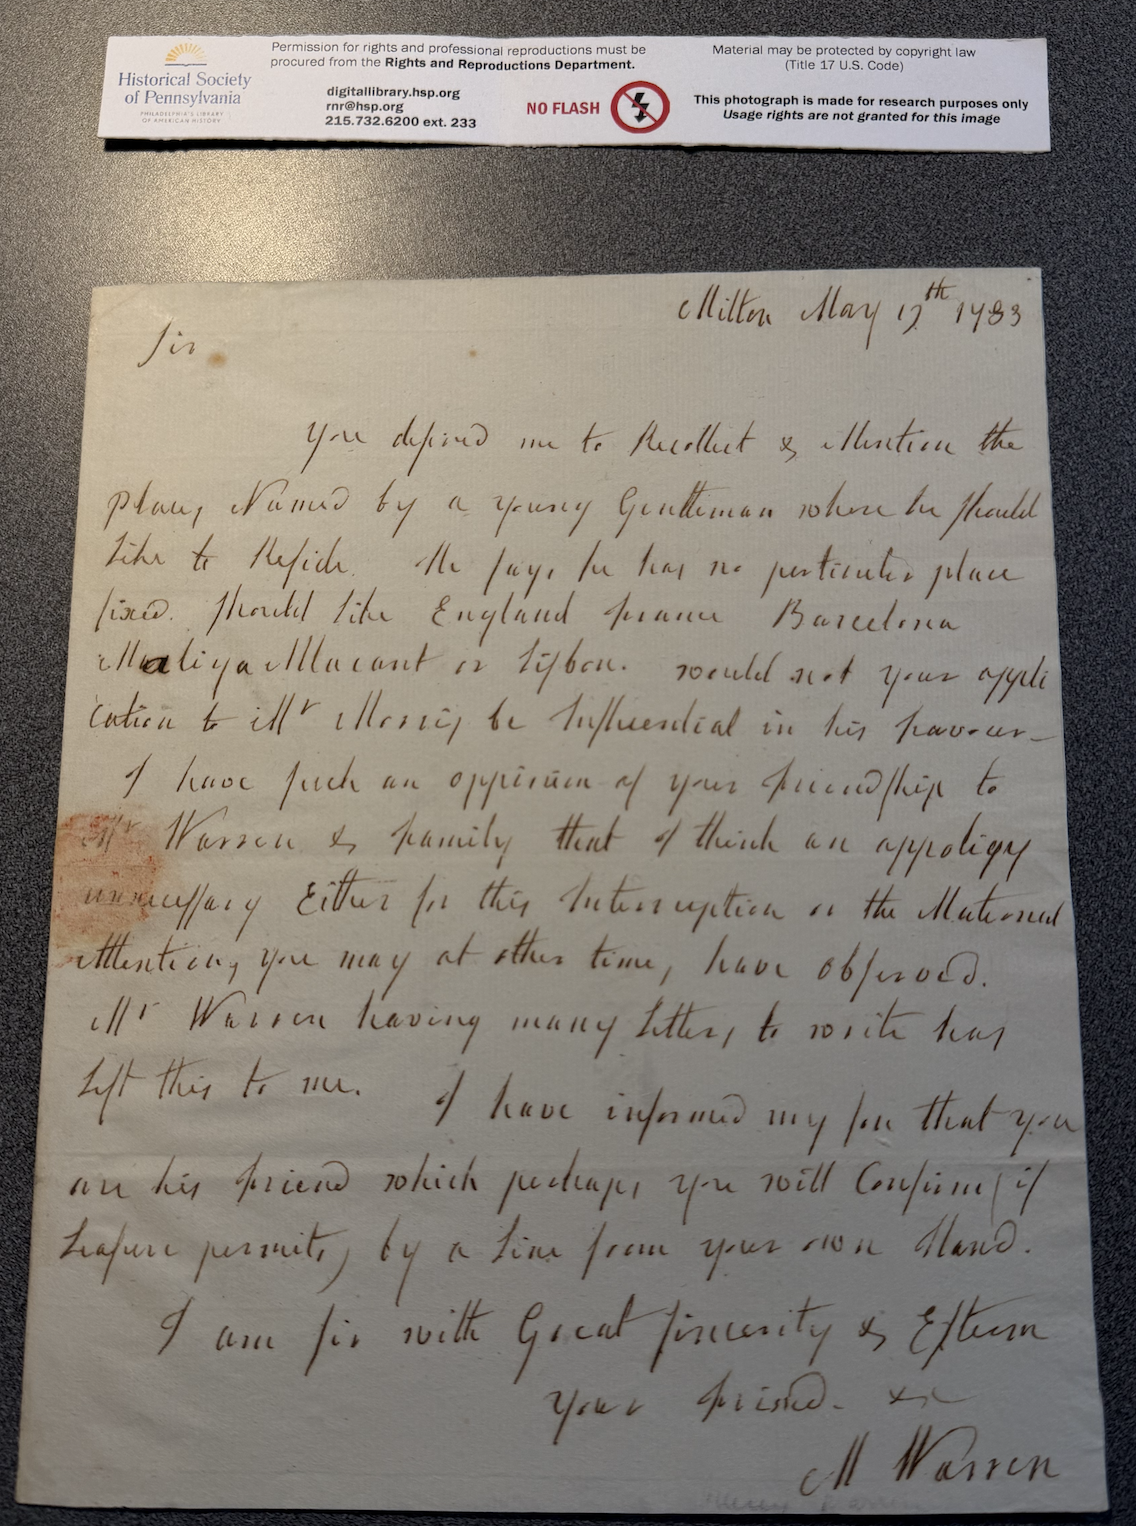 Historical Society
of Pennsylvania
PHILADELPHIA'S LIBRARY
OF AMERICAN HISTORY
Permission for rights and professional reproductions must be
procured from the Rights and Reproductions Department.
digitallibrary.hsp.org
rnr@hsp.org
215.732.6200 ext. 233
NO FLASH
Material may be protected by copyright law
(Title 17 U.S. Code)
This photograph is made for research purposes only
Usage rights are not granted for this image
Milton May 17th 1783
Sir
You desired me to Recollect & Mention the
places Named by a young Gentleman where he should
like to Reside. He says he has no perticuler place
fixed. should like England france Barcelona
Maliga Alacant or Lisbon. would not your appli
cation to Mr Morris be Influential in his favour_
I have such an oppinion of your friendship to
Mr Warren & family that I think an appoligy
unnecessary Either for this Interruption or the Maternal
Attentions you may at other times have observed.
Mr Warren having many letters to write has
left this to me. I have informed my son that you
are his friend which perhaps you will Confirm (if
Leasure permits) by a Line from your own Hand.
I am sir with Great sincerity & Esteem
your friend. &c
M Warren